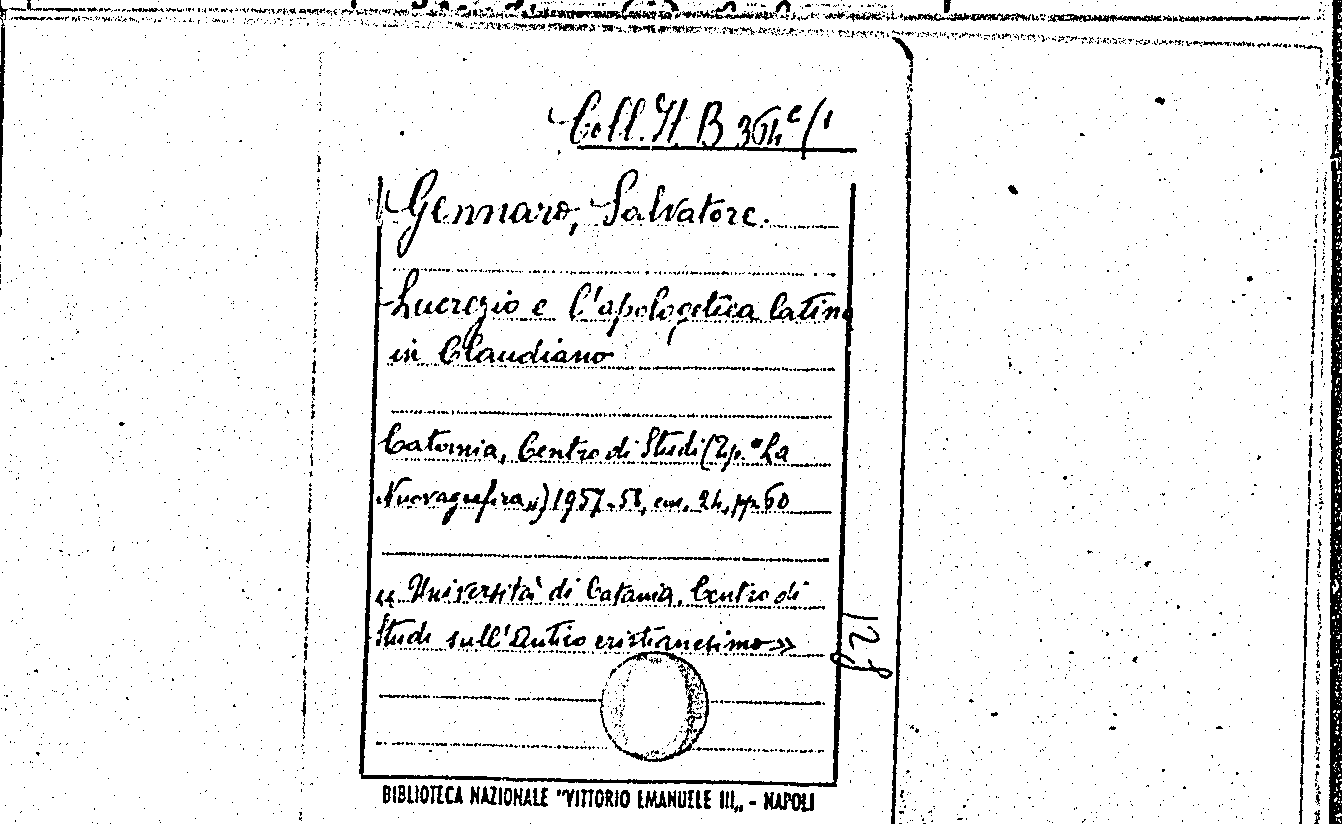 Coll. It. B 364 c/1
Gennaro, Salvatore.
Lucrezio e l'apologetica latina
in Claudiano
Catania, Centro di Studi (Tip. "La
Nuovagrafica„) 1957-58, cm. 24, pp. 60
« Università di Catania. Centro di
Studi sull'Antico cristianesimo »
128
BIBLIOTECA NAZIONALE "VITTORIO EMANUELE III„ - NAPOLI